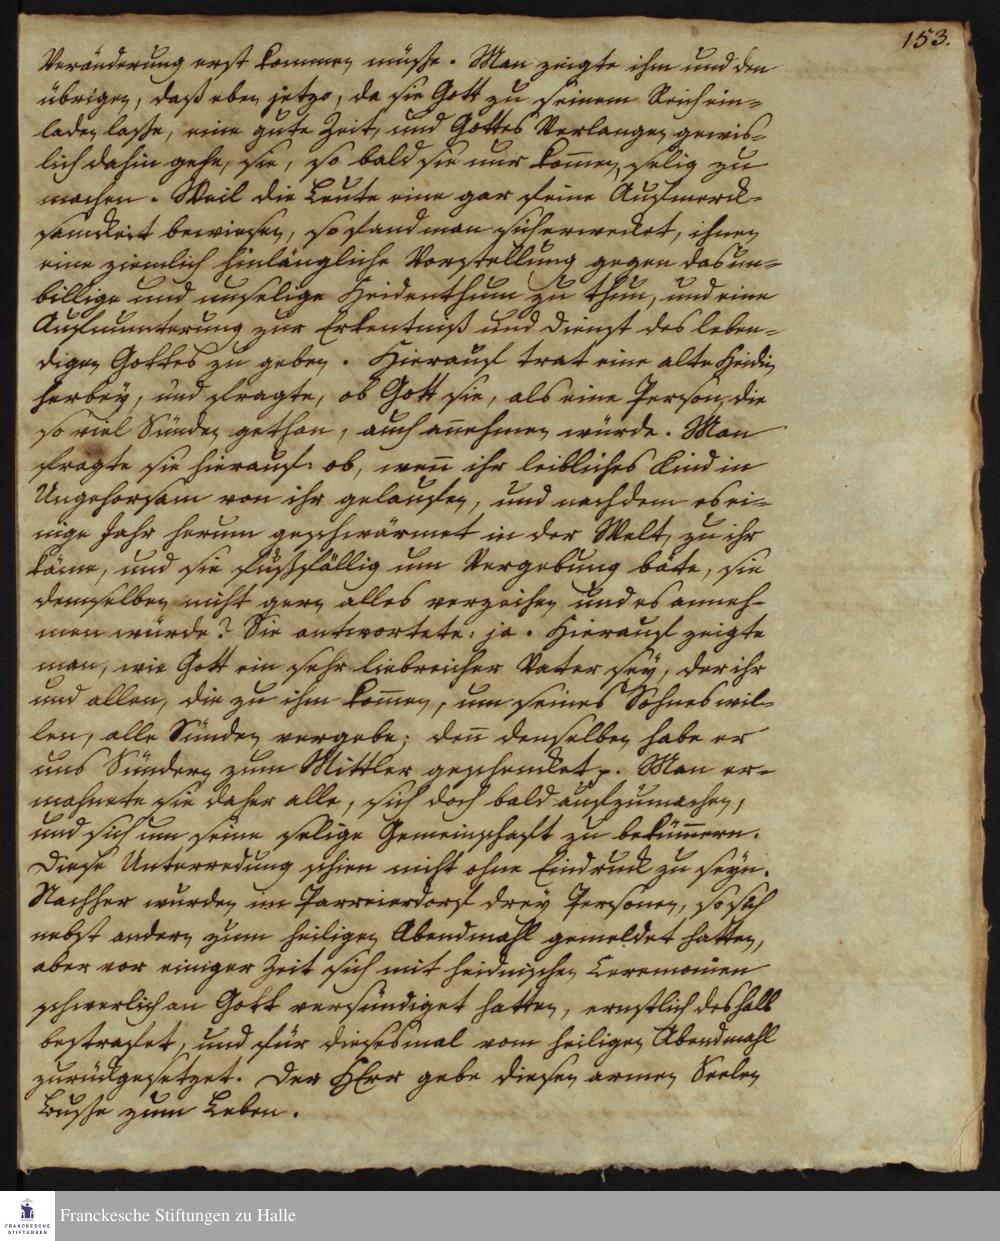 153.
Veränderung erst kommen müsse. Man zeigte ihm und den
übrigen, daß eben jetzo, da sie Gott zu seinem Reich ein-
laden lasse, eine gute Zeit, und Gottes Verlangen gewis-
lich dahin gehe, sie, so bald sie nur kom̅en, selig zu
machen. Weil die Leute eine gar feine Aufmerck-
samckeit bewiesen, so fand man sich erwecket, ihnen
eine ziemlich hinlängliche Vorstellung gegen das un-
billige und unselige Heidenthum zu thun, und eine
Aufmunterung zur Erkentniß und Dienst des leben-
digen Gottes zu geben. Hierauf trat eine alte Heidin
herbey, und fragte, ob Gott sie, als eine Person, die
so viel Sünden gethan, auch an̅ehmen würde. Man
fragte sie hierauf: ob, wen̅ ihr leibliches Kind in
Ungehorsam von ihr gelauffen, und nachdem es ei-
nige Jahr herum geschwärmet in der Welt, zu ihr
käme, und sie fußfällig um Vergebung bäte, sie
demselben nicht gern alles verzeihen und es anneh-
men würde? Sie antwortete: ja. Hierauf zeigte
man, wie Gott ein sehr liebreicher Vater sey, der ihr
und allen, die zu ihm kom̅en, um seines Sohnes wil-
len, alle Sünden vergebe; den̅ denselben habe er
uns Sündern zum Mittler geschencket p. Man er-
mahnete sie daher alle, sich doch bald aufzumachen,
und sich um seine selige Gemeinschaft zu beküm̅ern.
Diese Unterredung schien nicht ohne Eindruck zu seyn.
Nachher wurden im Parreierdorf drey Personen, so sich
nebst andern zum heiligen Abendmahl gemeldet hatten,
aber vor einiger Zeit sich mit heidnischen Ceremonien
schwerlich an Gott versündiget hatten, ernstlich deshalb
bestrafet, und für dieses mal vom heiligen Abendmahl
zurückgesetzet. Der HErr gebe diesen armen Seelen
Busse zum Leben.
FRANCKESCHE
STIFTUNGEN
Franckesche Stiftungen zu Halle